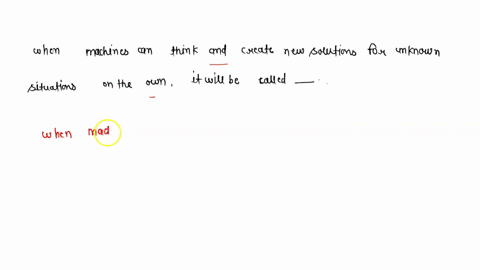 when machines can think and create new solutions for unknown
situations on the own, it will be called ___.
when mad